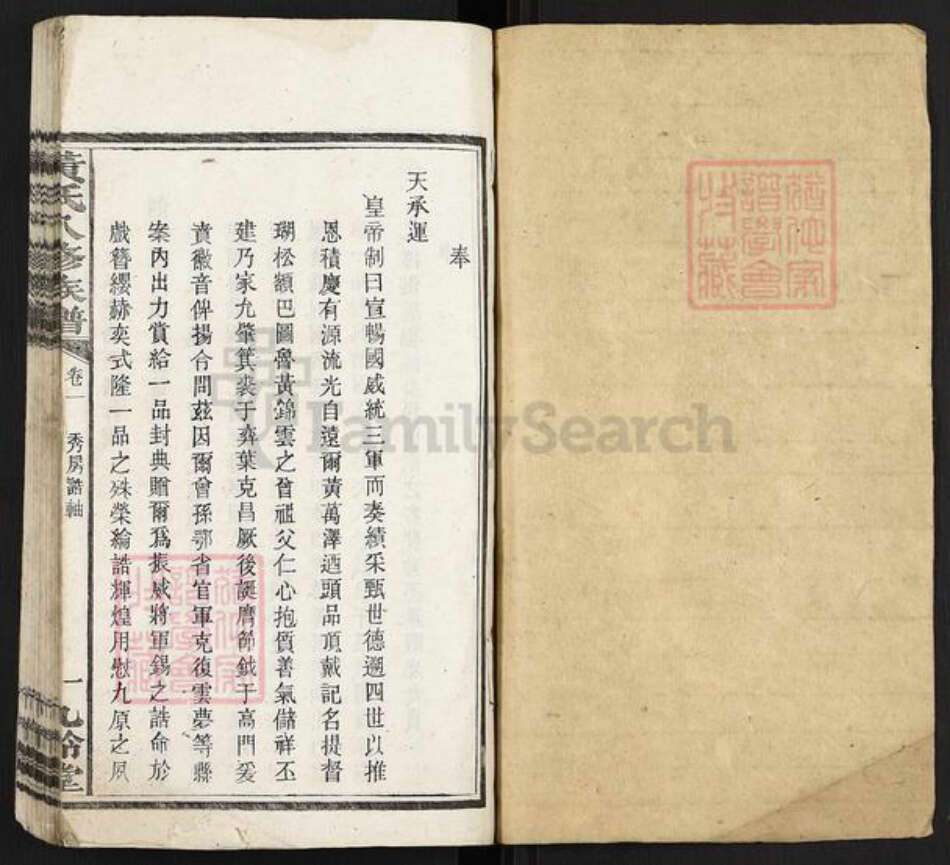 奉
天承運
皇帝制曰宣暢國威統三軍而奏績采甄世德遡四世以推
恩積慶有源流光自遠爾黃萬澤迺頭品頂戴記名提督
瑚松額巴圖魯黃錦雲之曾祖父仁心抱質善氣儲祥丕
建乃家允肇箕裘于弈葉克昌厥後誕膺節鉞于高門爰
賁徽音俾揚令問茲因爾曾孫鄂省官軍克復雲夢等縣
案內出力賞給一品封典贈爾爲振威將軍錫之誥命於
戲簪纓赫奕式隆一品之殊榮綸誥輝煌用慰九原之夙
黃氏八修族譜
卷一
秀房誥軸
一
九齡堂
FamilySearch